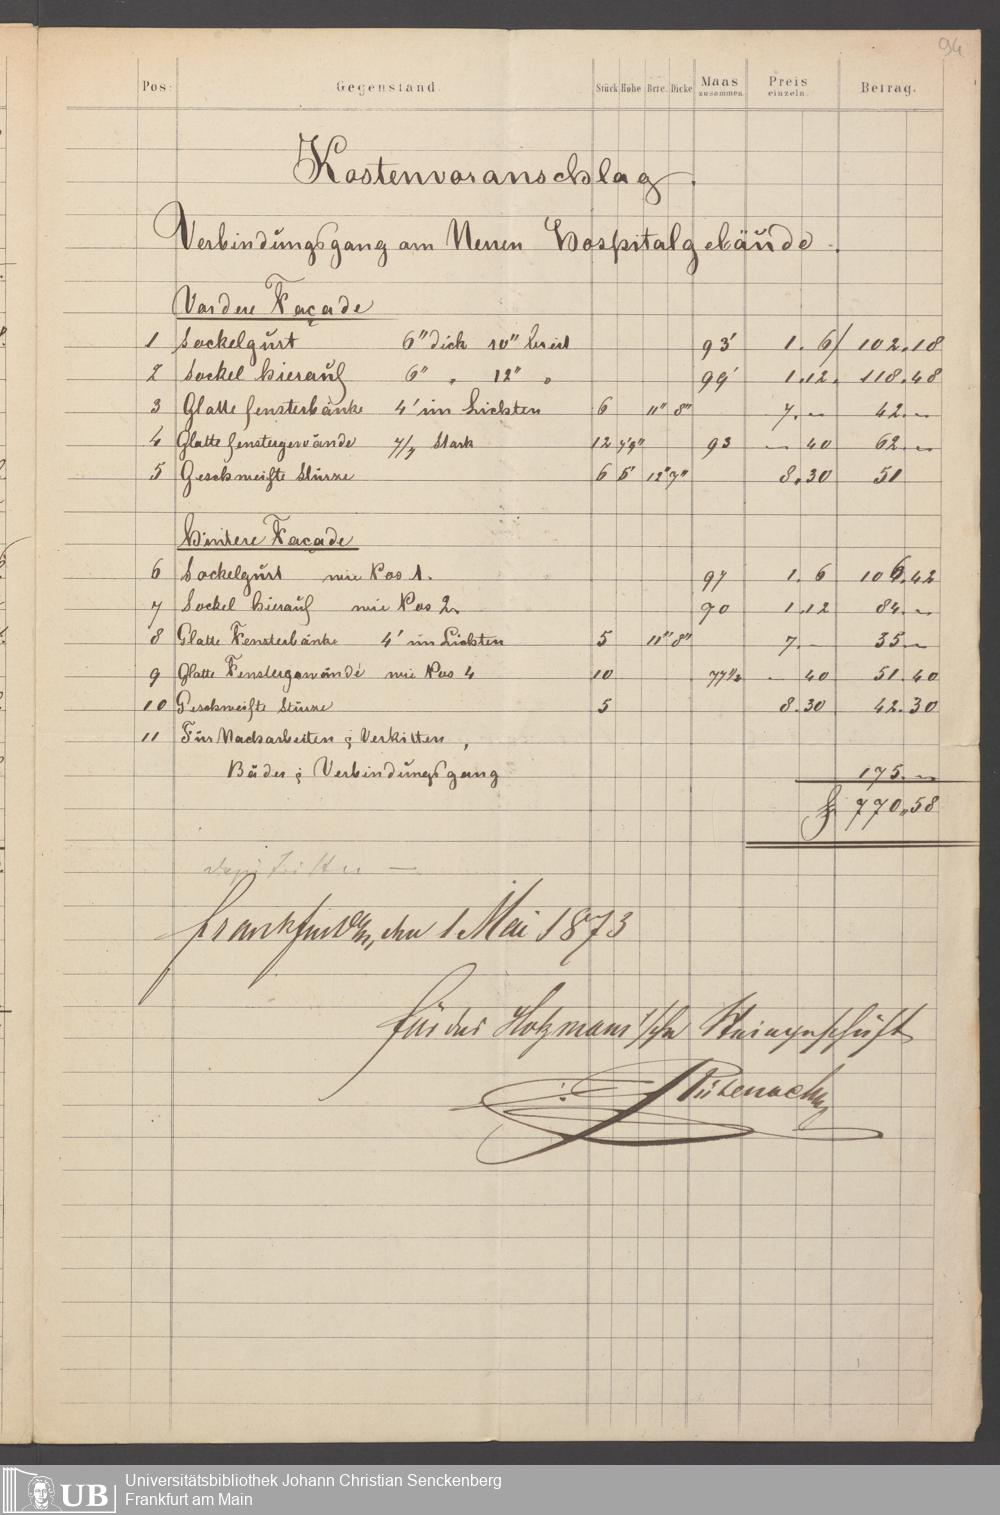 94
Pos: Gegenstand. Stück Höhe Brte. Dicke Maas zusammen. Preis einzeln. Betrag.
Kostenvoranschlag.
Verbindungsgang am Neuen Hospitalgebäude.
Vordere Façade
1 Sockelgurt 6" dick 10" breit 93' 1. 6 102.18
2 Sockel hierauf 6" „ 12" „ 99' 1.12. 118.48
3 Glatte Fensterbänke 4' im Lichten 6 11" 8" 7.— 42.—
4 Glatte Fenstergewände 7/7 Stark 12 7'9" 93 — 40 62.—
5 Geschweifte Stürze 6 5' 12" 7" 8.30 51
Hintere Façade
6 Sockelgurt wie Pos 1. 97 1. 6 106.42
7 Sockel hierauf wie Pos 2. 70 1.12 84.—
8 Glatte Fensterbänke 4' im Lichten 5 11" 8" 7.— 35.—
9 Glatte Fenstergewände wie Pos 4 10 77 1/2 — 40 51.40
10 Geschweifte Stürze 5 8.30 42.30
11 Für Nacharbeiten & Verkitten,
Bäder & Verbindungsgang 175.—
f 770.58
Frankfurt a/M, den 1 Mai 1873
Für das Holzmann'sche Steingeschäft
UB
Universitätsbibliothek Johann Christian Senckenberg
Frankfurt am Main